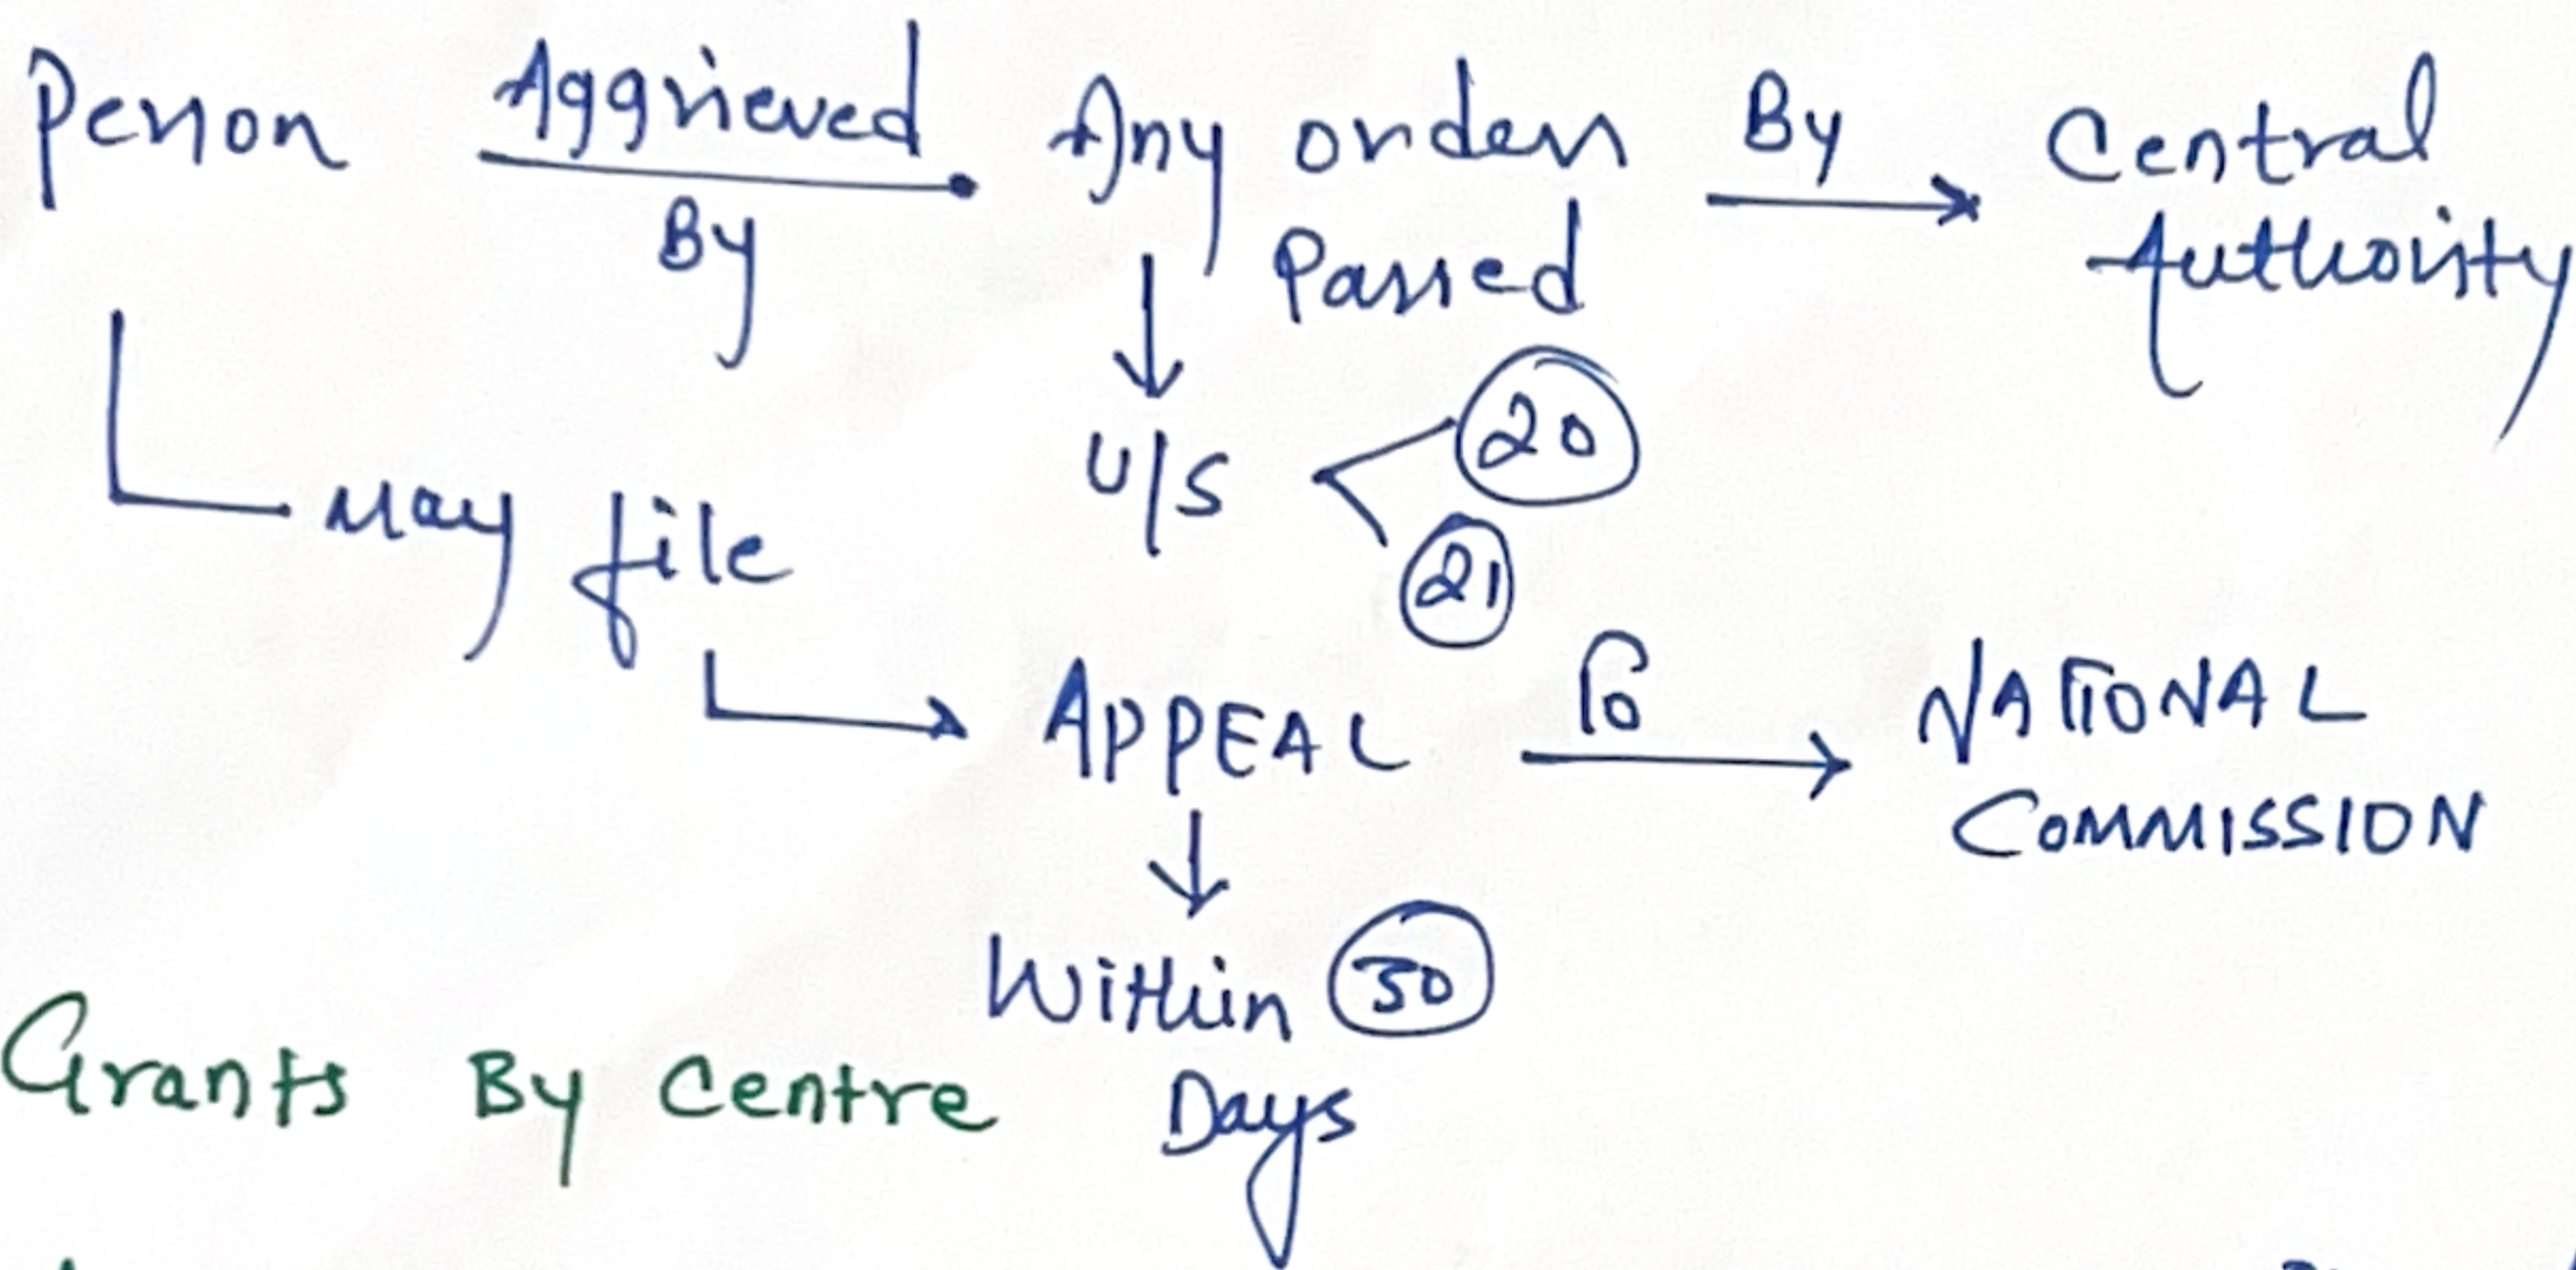 Person Aggrieved By Any order Passed By Central Authority
U/S 20
21
May file
APPEAL To NATIONAL COMMISSION
Within 30 Days
Grants By Centre